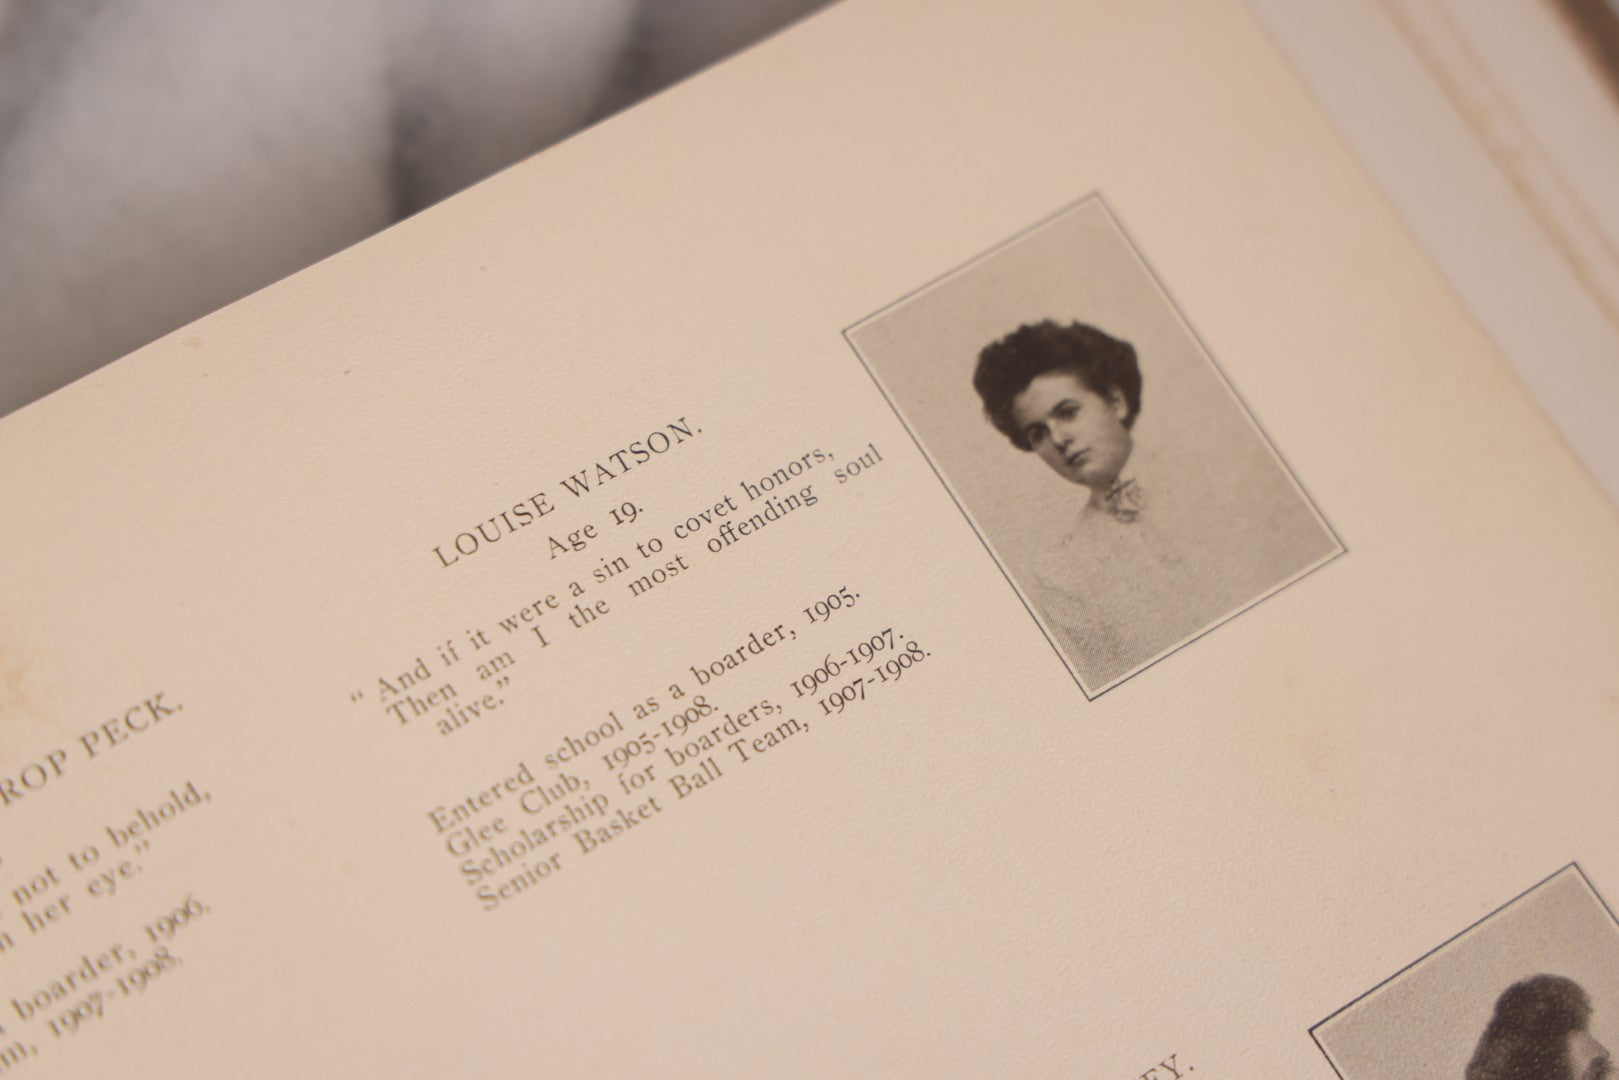 LOUISE WATSON.
Age 19.
“ And if it were a sin to covet honors,
Then am I the most offending soul
alive.”
Entered school as a boarder, 1905.
Glee Club, 1905-1908.
Scholarship for boarders, 1906-1907.
Senior Basket Ball Team, 1907-1908.
ROP PECK.
not to behold,
her eye.”
boarder, 1906.
1907-1908.
EY.